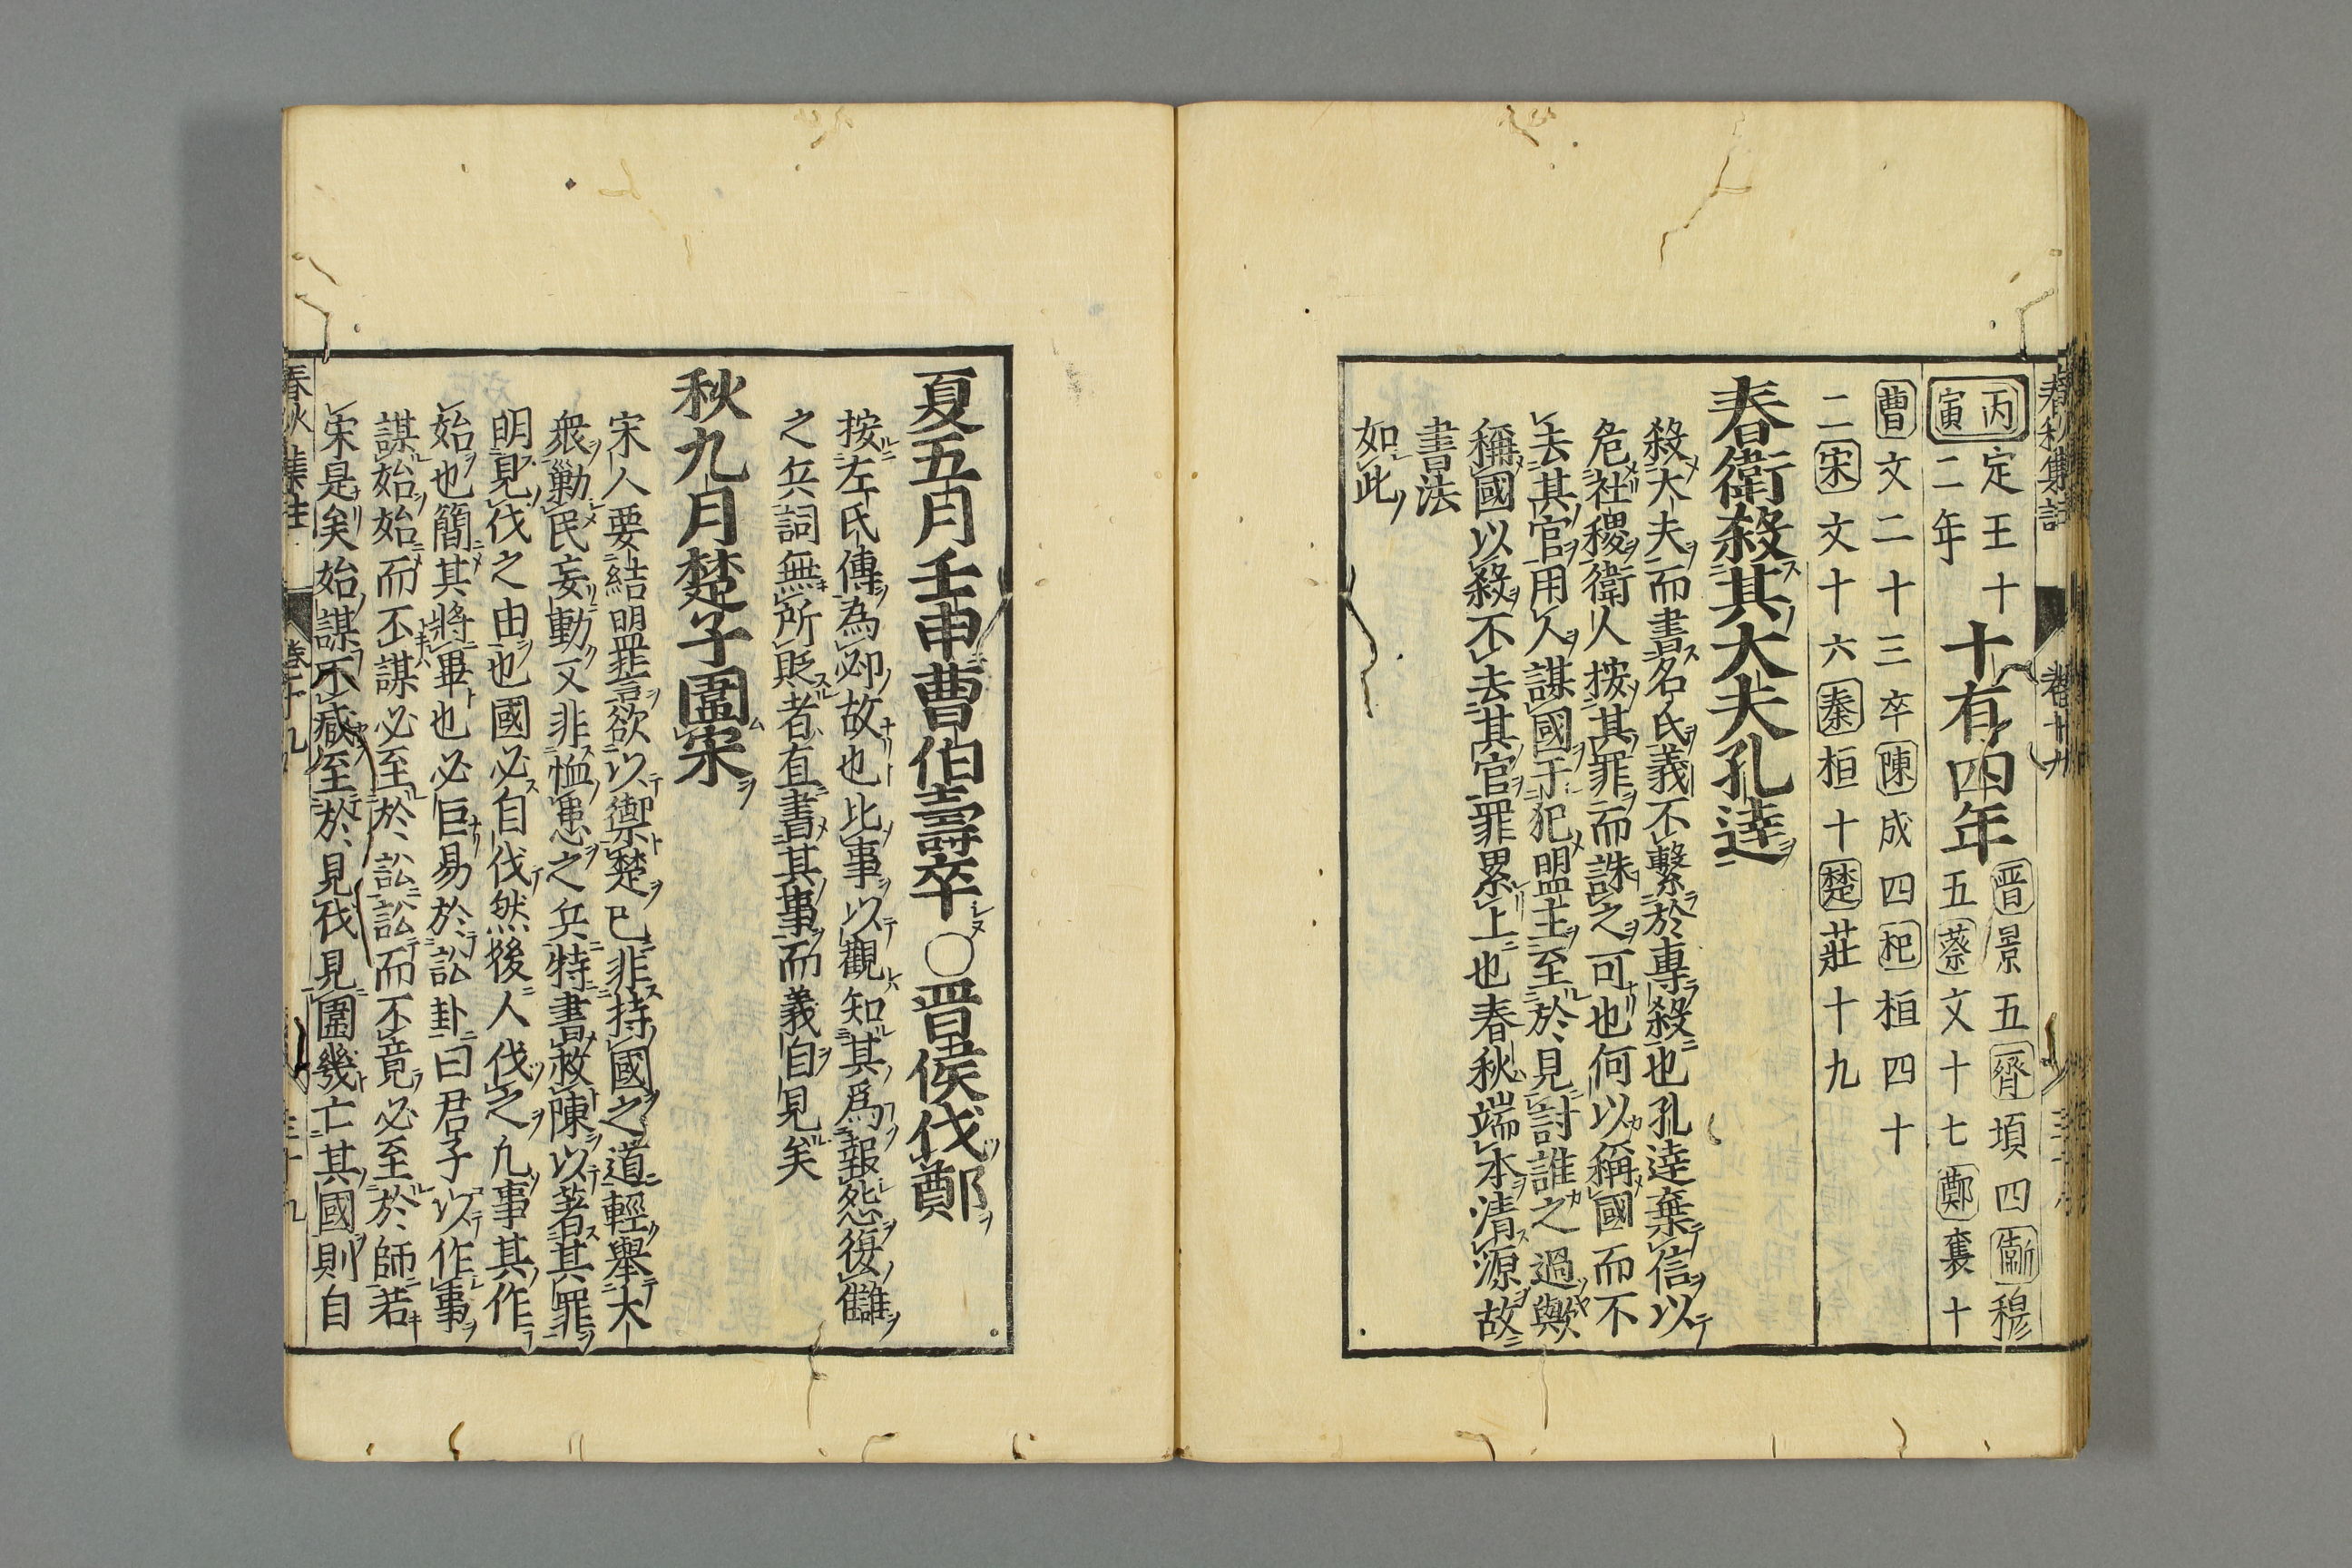 春秋集註 卷十九
丙寅 定王十二年 十有四年 晋景五齊頃四衞穆五蔡文十七鄭襄十
曹文二十三卒陳成四杞桓四十
二宋文十六秦桓十楚莊十九
春衛殺其大夫孔達
殺大夫而書名氏義不繫於專殺也孔達棄信以
危社稷衛人按其罪而誅之可也何以稱國而不
去其官用人謀國于犯盟主至於見討誰之過歟
稱國以殺不去其官罪累上也春秋端本清源故
書法
如此
夏五月壬申曹伯壽卒○晋侯伐鄭
按左氏傳為邲故也比事以觀知其爲報怨復讎
之兵詞無所貶者直書其事而義自見矣
秋九月楚子圍宋
宋人要結盟誓欲以禦楚已非持國之道輕舉大
衆勦民妄動又非恤患之兵特書救陳以著其罪
明見伐之由也國必自伐然後人伐之凢事其作
始也簡其將畢也必巨易於訟卦曰君子以作事
謀始始而不謀必至於訟訟而不竟必至於師若
宋是矣始謀不臧至於見伐見圍幾亡其國則自
春秋集註 卷十九